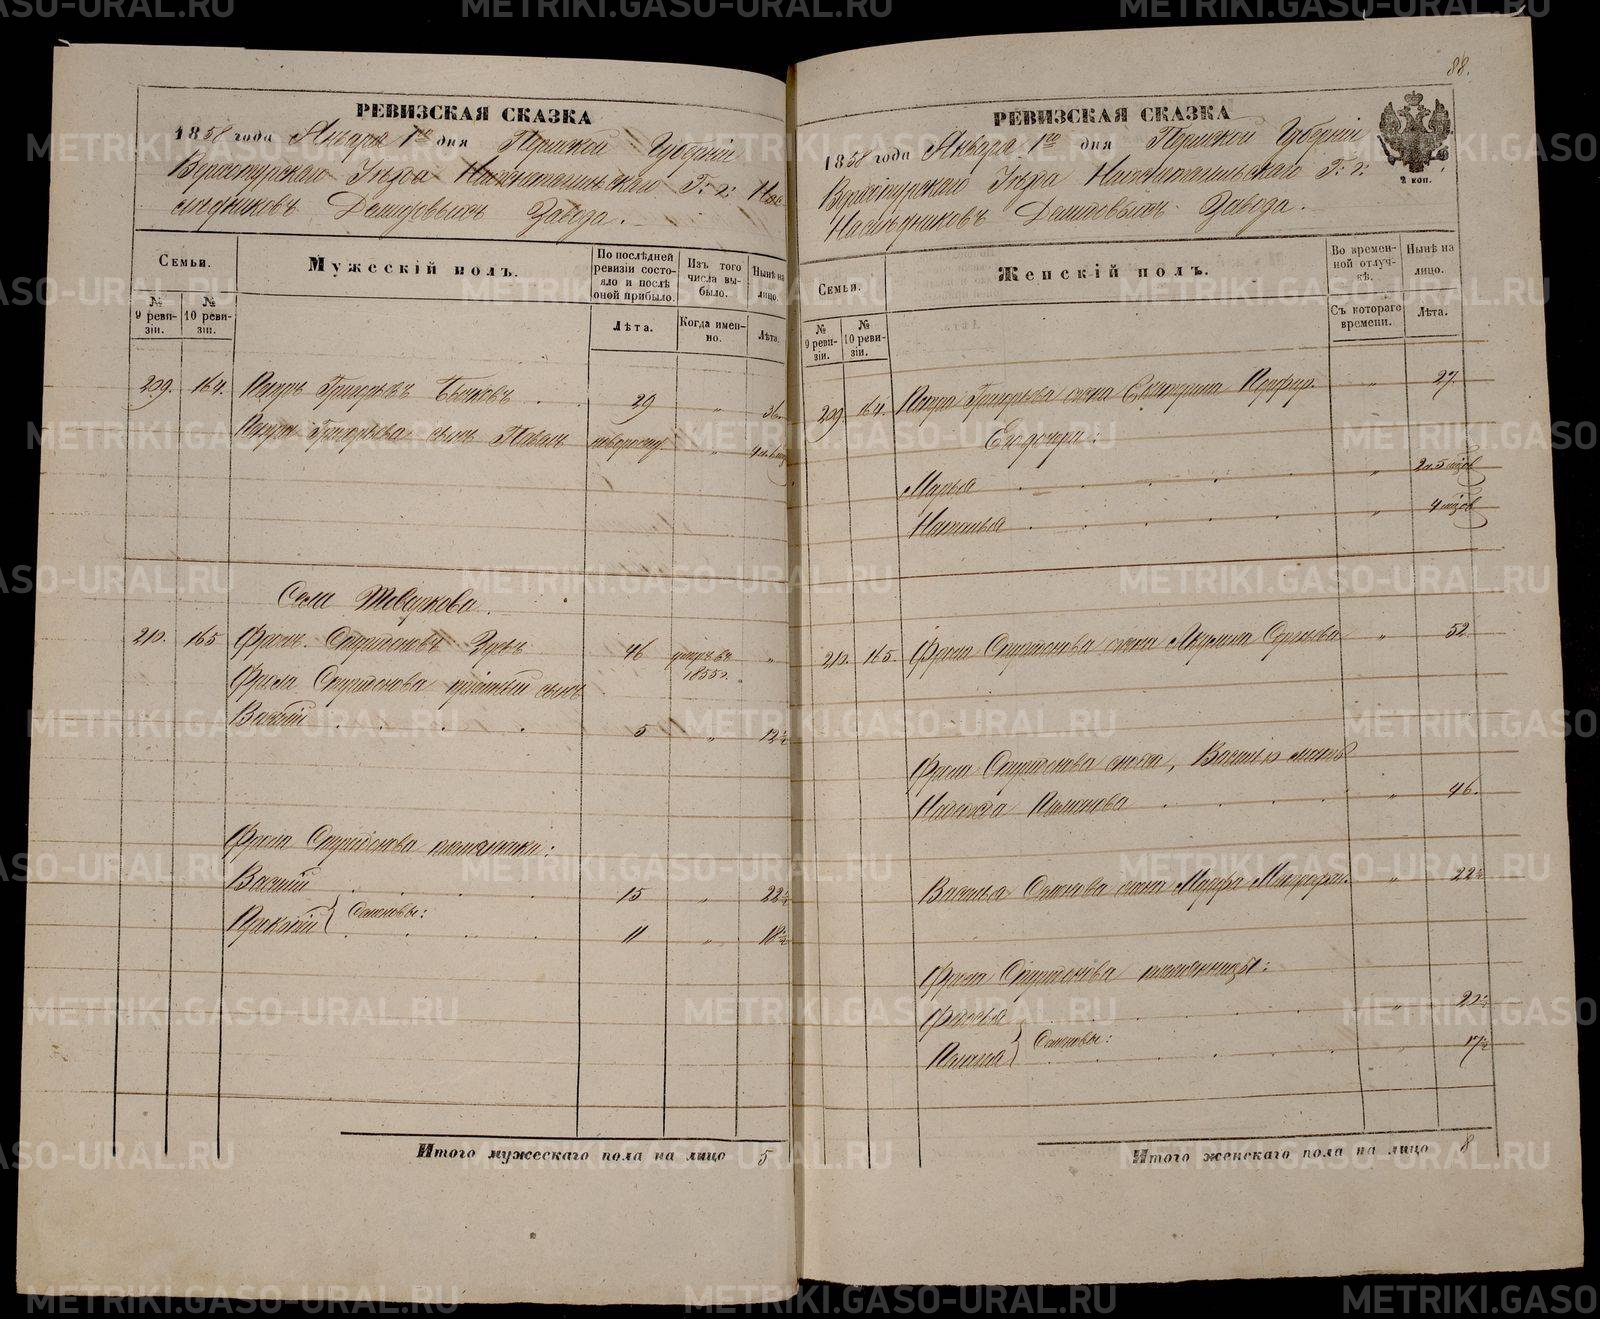 РЕВИЗСКАЯ СКАЗКА
1858 года Января 1го дня Пермской Губерніи
Верхотурскаго Уезда Нижнетагильскаго Г: г: Нас-
ледниковъ Демидовыхъ Завода.
Семьи.
Мужескій полъ.
По послѣдней ревизіи состояло и послѣ оной прибыло.
Изъ того числа выбыло.
Нынѣ на лицо.
№ 9 ревизіи.
№ 10 ревизіи.
Лѣта.
Когда именно.
Лѣта.
209. 164. Петръ Григорьевъ Бычковъ 29 " 36
Петра Григорьева сынъ Павелъ новорожд. "
Села
210. 165 Фролъ Спиридоновъ 46 умеръ въ 1855 г. "
Фрола Спиридонова пріемный сынъ
Василій 5 " 12½
Фрола Спиридонова племянники:
Василій 15 " 22½
Прокопій } 11 " 18½
Итого мужескаго пола на лицо 5
88.
РЕВИЗСКАЯ СКАЗКА
1858 года Января 1го дня Пермской Губерніи
Верхотурскаго Уезда Нижнетагильскаго Г: г:
Наследниковъ Демидовыхъ Завода.
2 коп.
Семьи.
Женскій полъ.
Во временной отлучкѣ.
Нынѣ на лицо.
№ 9 ревизіи.
№ 10 ревизіи.
Съ котораго времени.
Лѣта.
209. 164. Петра Григорьева жена Екатерина Порфир. " 27.
Его дочери:
Марья " 2 г. 5 мцов
Наталья " 4 мцов
210. 165. Фрола Спиридонова жена Акулина Сергеева " 52
Фрола Спиридонова , Василья
Надежда " 46.
Василья жена Марфа Митрофан. " 22½
Фрола Спиридонова племянницы:
Федосья
17½
Итого женскаго пола на лицо 8
METRIKI.GASO-URAL.RU